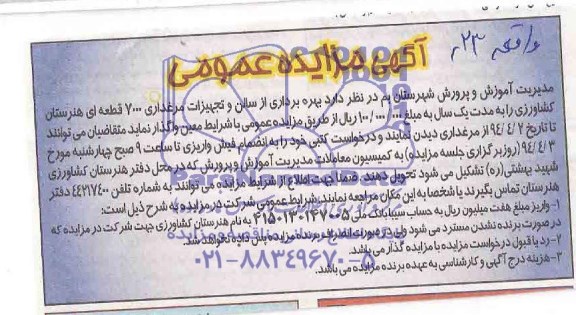 واقعه ۲۳
آگهی مزایده عمومی
مدیریت آموزش و پرورش شهرستان بم در نظر دارد بهره برداری از سالن و تجهیزات مرغداری ۷۰۰۰ قطعه ای هنرستان
کشاورزی را به مدت یک سال به مبلغ ۱۰۰/۰۰۰/۰۰۰ ریال از طریق مزایده عمومی با شرایط معین واگذار نماید متقاضیان می توانند
تا تاریخ ۹۴/۴/۲ از مرغداری دیدن نمایند و درخواست کتبی خود را به انضمام فیش واریزی تا ساعت ۹ صبح چهارشنبه مورخ
۹۴/۴/۳ (روز برگزاری جلسه مزایده) به کمیسیون معاملات مدیریت آموزش و پرورش که در محل دفتر هنرستان کشاورزی
شهید بهشتی (ره) تشکیل می شود تحویل دهند. ضمنا جهت اطلاع از شرایط مزایده می توانند به شماره تلفن ۴۴۲۱۷۴۰۰ دفتر
هنرستان تماس بگیرند یا شخصا به این مکان مراجعه نمایند. شرایط عمومی شرکت در مزایده به شرح ذیل است:
۱- واریز مبلغ هفت میلیون ریال به حساب سیبا بانک ملی ۲۱۵۰۱۳۰۱۴۷۰۰۵ به نام هنرستان کشاورزی جهت شرکت در مزایده که
در صورت برنده نشدن مسترد می شود ولی در صورت انصراف برنده مزایده پس داده نخواهد شد.
۲- رد یا قبول درخواست مزایده یا مزایده گذار می باشد.
۳- هزینه درج آگهی و کارشناسی به عهده برنده مزایده می باشد.
۰۲۱-۸۸۳۴۹۶۷۰-۵